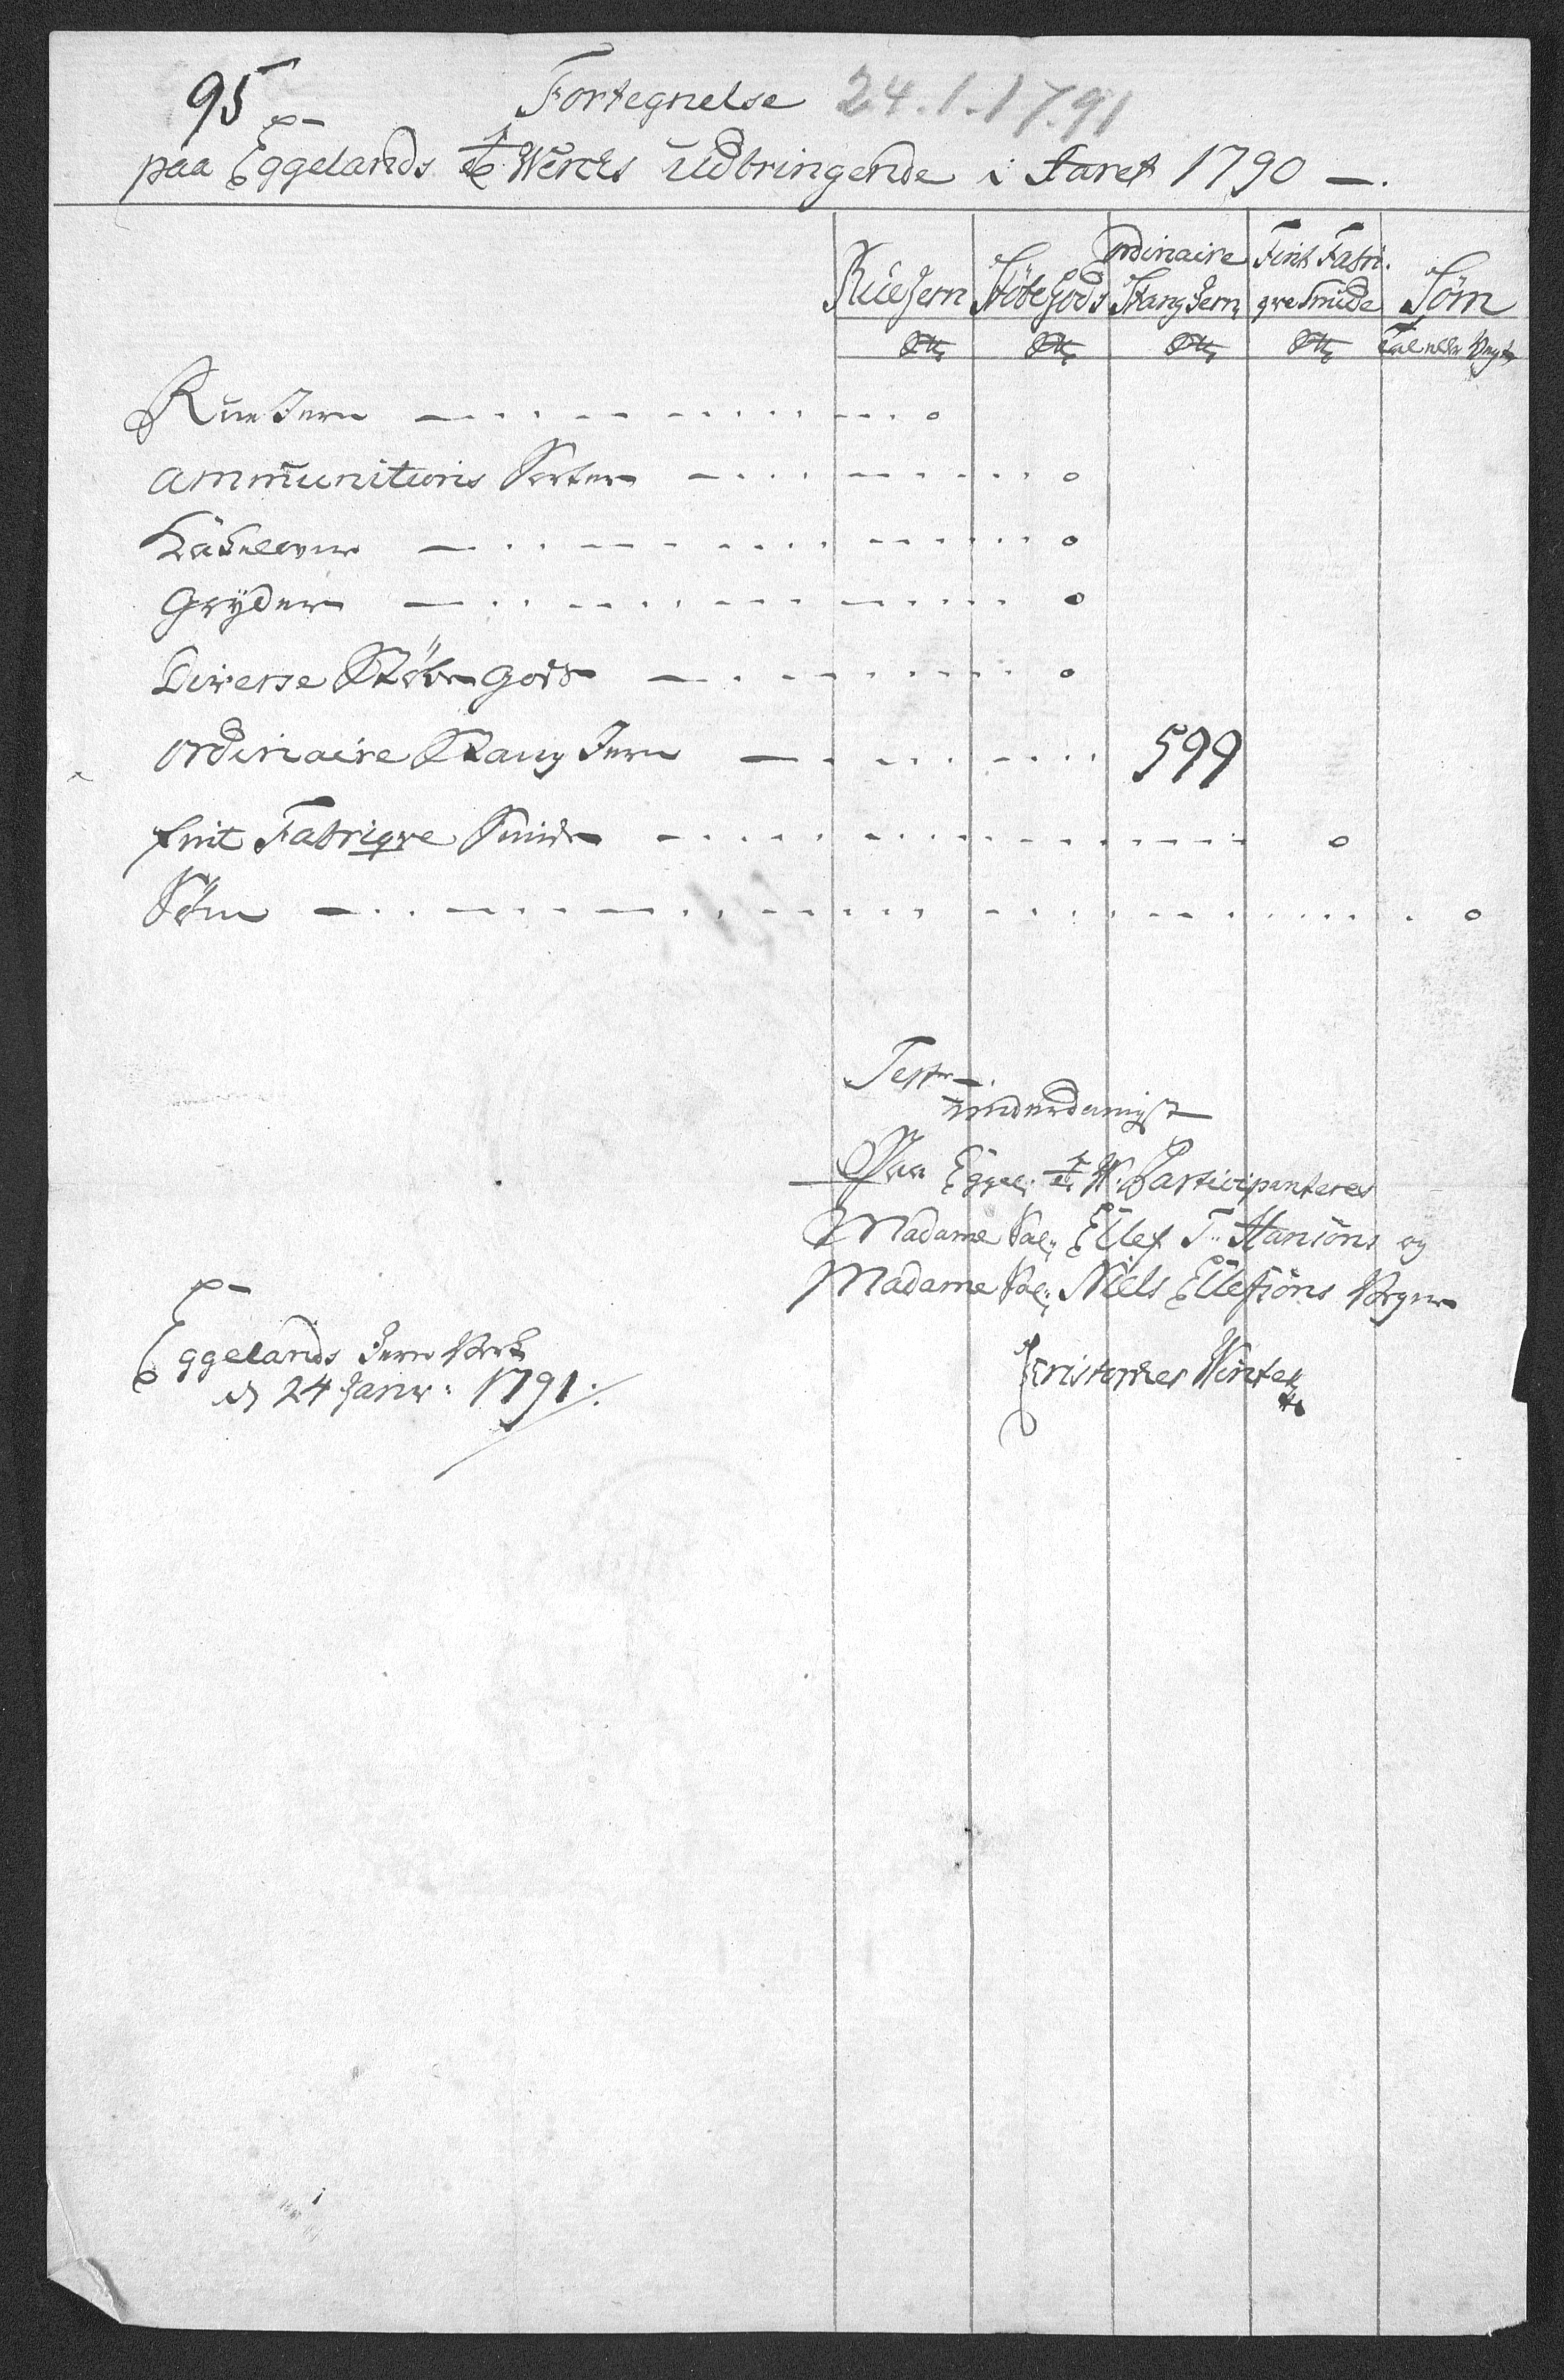 95
Fortegnelse 24.1.1791
paa Eggelands Wercks Udbringende i Aaret 1790 —.
RueJern StöbeGods ordinaire StangJern Fint Fabriqve Smide Söm
Sk℔ Sk℔ Sk℔ Sk℔ Tal eller Vegt
Rue Jern o
ammunitions Sorter o
Kakelovne o
Gryder o
Diverse Stöbe Gods o
ordinaire Stang Jern 599
fint Fabriqve Smide o
Söm o
Test—.
underdanigst
Paa Eggel. W. Participanteres
Madame Sal. Ellef T. Hansöns og
Madame Sal. Niels Ellefsöns Vegne
Christopher Winter
Eggelands Jern Verk
d 24 Janv: 1791.